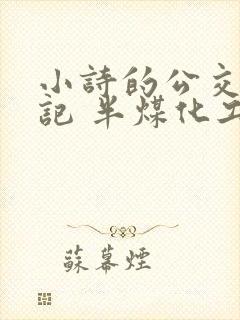 小詩的公交
記 半煤化工
蘇幕煙